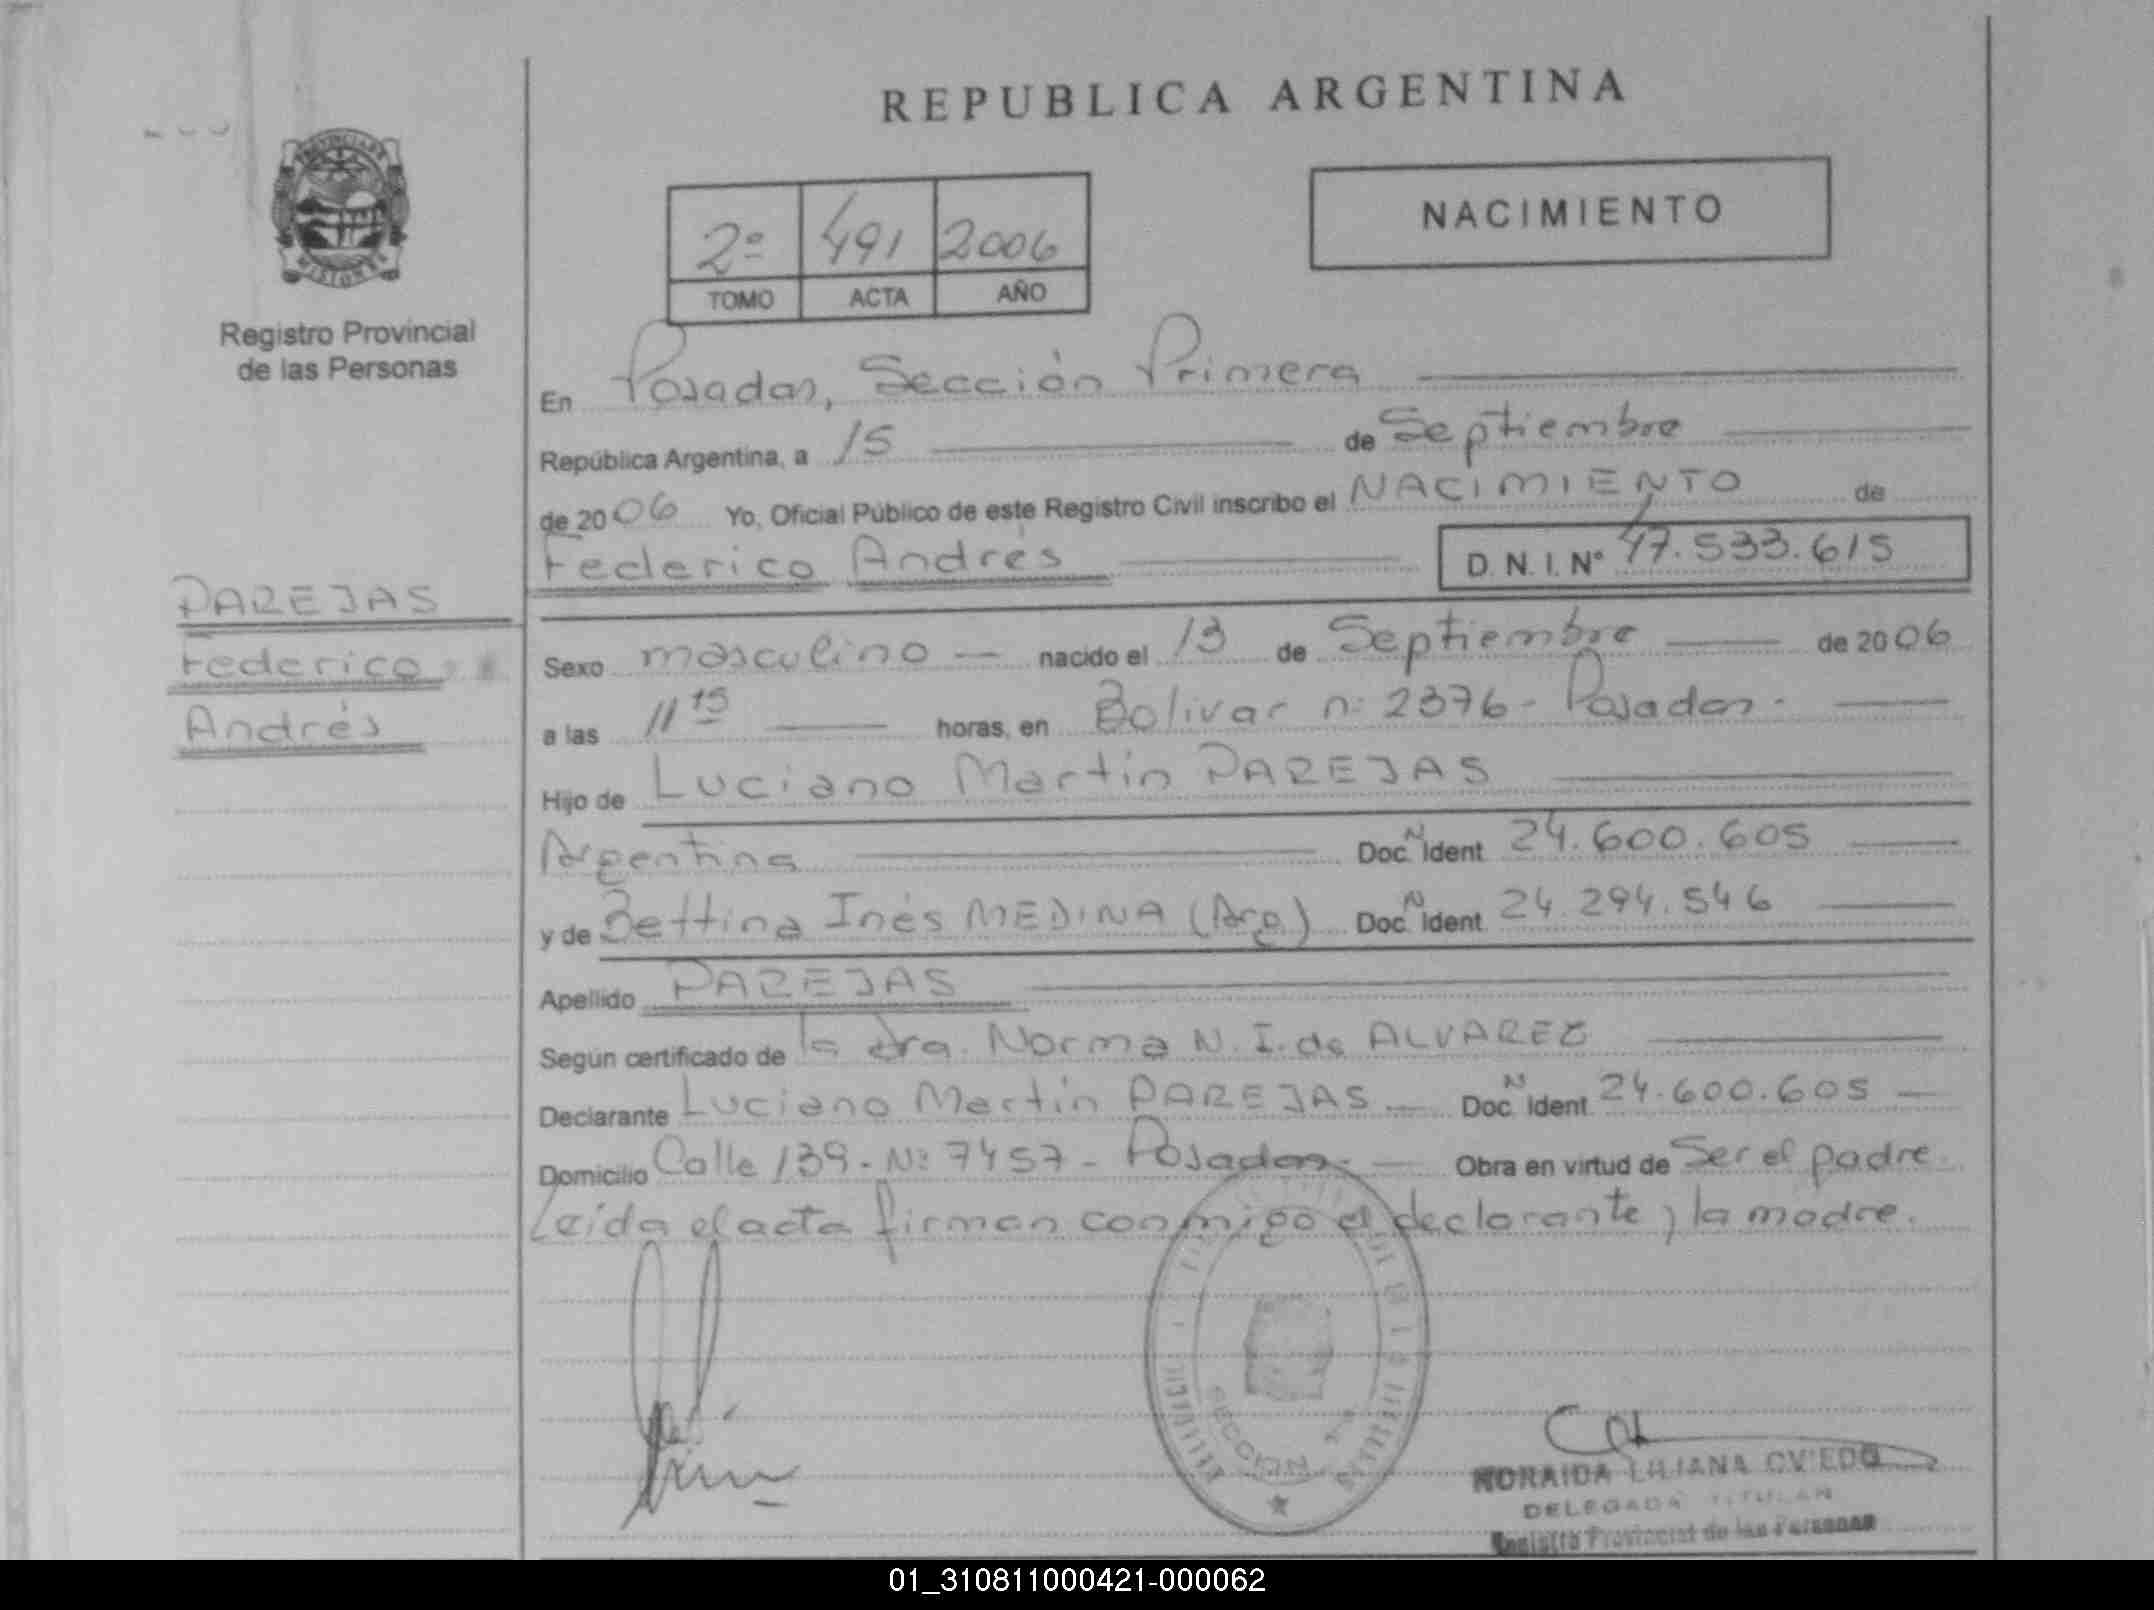 REPUBLICA ARGENTINA
PROVINCIA DE
MISIONES
Registro Provincial
de las Personas
2º 491 2006
TOMO ACTA AÑO
NACIMIENTO
En Posadas, Sección Primera
República Argentina, a 15 de Septiembre
de 2006 Yo, Oficial Público de este Registro Civil inscribo el NACIMIENTO de
Federico Andrés D. N. I. Nº 47.533.615
PAREJAS
Federico
Andrés
Sexo masculino nacido el 13 de Septiembre de 2006
a las 11 15 horas, en Bolivar nº 2376 - Posadas -
Hijo de Luciano Martín PAREJAS
Argentina Doc. N Ident 24.600.605
y de Bettina Inés MEDINA (Arg) Doc. N Ident 24.294.546
Apellido PAREJAS
Según certificado de la dra. Norma N. I. de ALVAREZ
Declarante Luciano Martín PAREJAS Doc. N Ident 24.600.605
Domicilio Calle 139 - Nº 7457 - Posadas - Obra en virtud de Ser el padre.
Leída el acta firman conmigo el declarante y la madre.
SECCION
NORAIDA LILIANA OVIEDO
DELEGADA TITULAR
Registro Provincial de las Personas
01_310811000421-000062